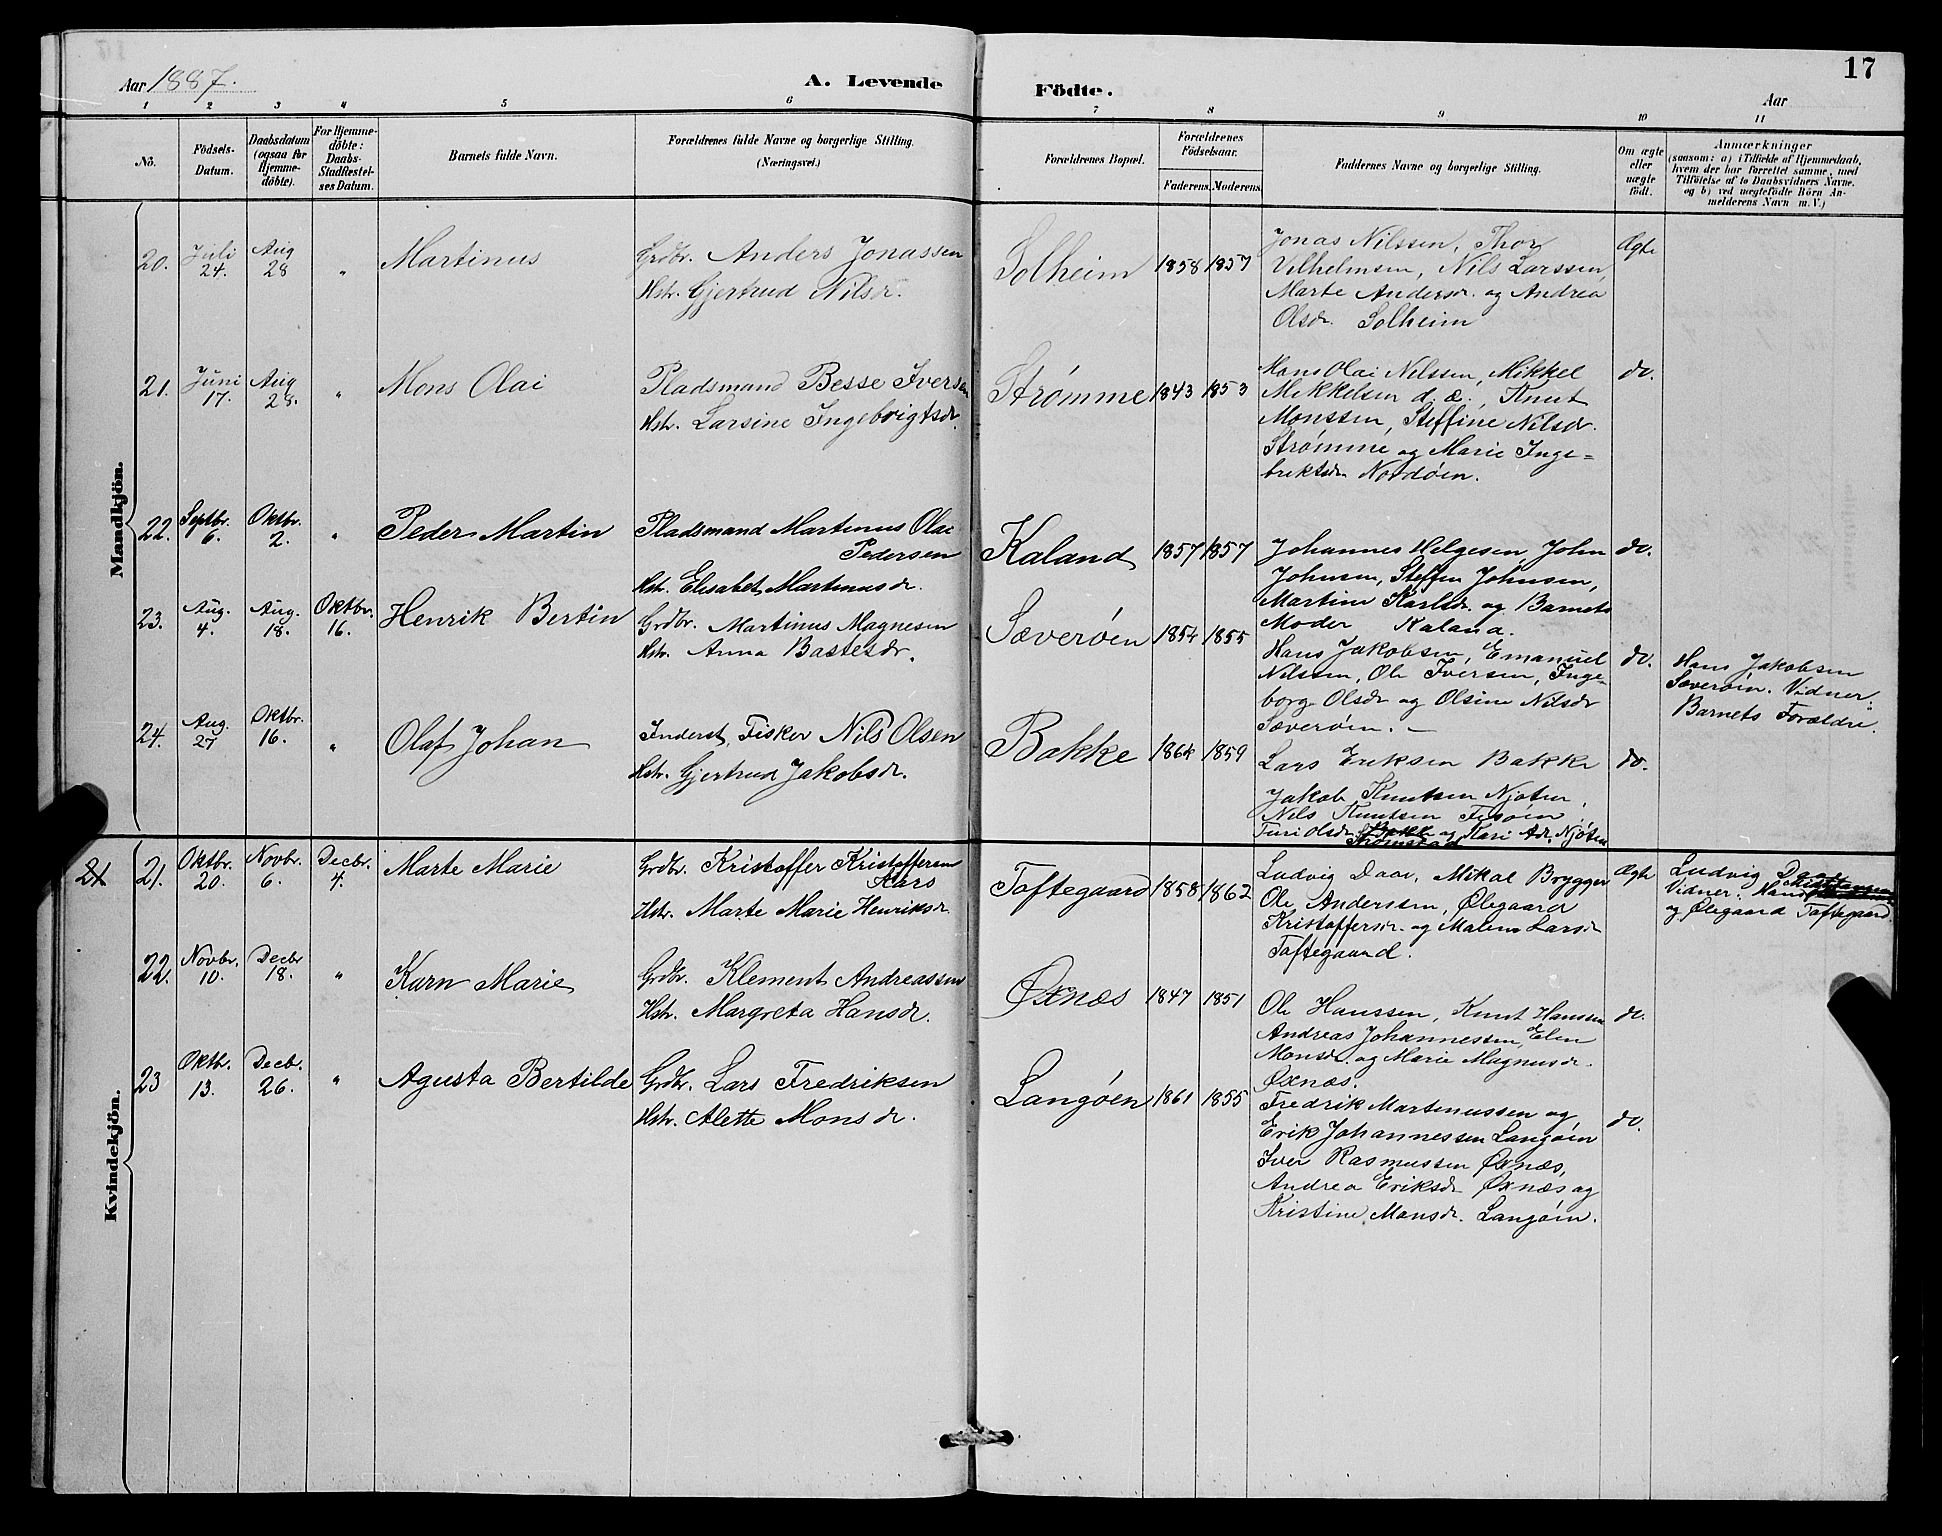 17
Aar 1887.
A. Levende Födte.
Aar
1 2 3 4 5 6 7 8 9 10 11
No.
Födsels-
Datum.
Daabsdatum
(ogsaa for
Hjemme-
döbte).
For Hjemme-
döbte:
Daabs-
Stadfestel-
ses Datum.
Barnets fulde Navn.
Forældrenes fulde Navne og borgerlige Stilling.
(Næringsvei.)
Forældrenes Bopæl.
Forældrenes
Födselsaar.
Faderens. Moderens.
Faddernes Navne og borgerlige Stilling.
Om ægte
eller
uægte
födt.
Anmærkninger
(saasom: a) i Tilfælde af Hjemmedaab,
hvem der har forrettet samme, med
Tilföielse af to Daabsvidners Navne.
og b) ved uægtefödte Börn An-
melderens Navn m. V.)
Mandkjön.
20. Juli 24. Aug 28 " Martinus
Grdbr. Anders Jonassen
Hstr. Gjertrud Nilsdr.
Solheim 1858 1857
Jonas Nilssen, Thor
Vilhelmsen, Nils Larssen,
Marte Andersdr. og Andrea
Olsdr. Solheim
Ægte
21. Juni 17. Aug 28. " Mons Olai
Pladsmand Besse Iversen
Hstr. Larsine Ingebrigtsdr.
Strømme 1843 1853
Hans Olai Nilssen, Mikkel
Mikkelsen d. æ., Knut
Monssen, Steffine Nilsdr.
Strømme og Marie Inge-
briktsdr Nordøen.
do.
22. Septbr. 6. Oktbr. 2. " Peder Martin
Pladsmand Martinus Olai
Pedersen
Hstr. Elisabet Martinusdr.
Kaland 1857 1857
Johannes Helgesen, John
Johnsen, Steffen Johnsen,
Martine Karlsdr. og Barnets
Moder Kaland.
do.
23. Aug. 4. Aug. 18. Oktbr. 16. Henrik Bertin
Grdbr. Martinus Magnesen
Hstr. Anna Bastesdr.
Sæverøen 1854 1855
Hans Jakobsen, Emanuel
Nilssen, Ole Iversen, Inge-
borg Olsdr og Olsine Nilsdr
Sæverøen.
do.
Hans Jakobsen
Sæverøen. Vidner:
Barnets Forældre.
24. Aug. 27 Oktbr. 16. " Olaf Johan
Inderst, Fisker Nils Olsen
Hstr. Gjertrud Jakobsdr.
Bakke 1864 1859
Lars Eriksen Bakke
Jakob Knutsen Njøten,
Nils Knutsen
Turi Olsdr og Kari Njøten
Strømstad
do.
Kvindekjön.
21 21. Oktbr. 20. Novbr. 6. Decbr. 4. Marte Marie
Grdbr. Kristoffer Kristoffersen
Aars
Hstr. Marte Marie Henriksdr
Taftegaard 1858 1862
Ludvig Daae, Mikal Brygger
Ole Anderssen, Ølegaard
Kristoffersdr. og Malene Larsdr
Taftegaard.
Ægte
Ludvig Daae
Vidner:
og Ølegaard Taftegaard.
22. Novbr. 10. Decbr 18. " Karn Marie
Grdbr. Klement Andreassen
Hstr. Margreta Hansdr.
Øxnæs 1847 1851
Ole Hanssen, Knut Hanssen
Andreas Johannessen, Elen
Monsdr. og Marie Magnusdr.
Øxnæs.
do.
23 Oktbr. 13. Decbr. 26. " Agusta Bertilde
Grdbr. Lars Fredriksen
Hstr. Alette Monsdr.
Langøen 1861 1855
Fredrik Martinussen og
Erik Johannessen Langøen
Iver Rasmussen Øxnæs,
Andrea Eriksdr Øxnæs og
Kristine Monsdr. Langøen.
do.